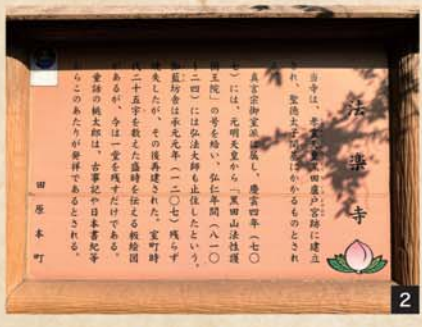 法楽寺
当寺は、孝霊天皇黒田廬戸宮跡に建立
され、聖徳太子開基にかかるものとされ
真言宗御室派に属し、慶雲四年（七〇
七）には、元明天皇から「黒田山法性護
国王院」の号を給い、弘仁年間（八一〇
～八二四）には弘法大師も止住したという。
伽藍坊舎は承元元年（一二〇七）残らず
焼失したが、その後再建された。室町時
代二十五宇を数えた盛時を伝える板絵図
があるが、今は一堂を残すだけである。
童話の桃太郎は、古事記や日本書紀等
からこのあたりが発祥であるとされる。
田原本町
2